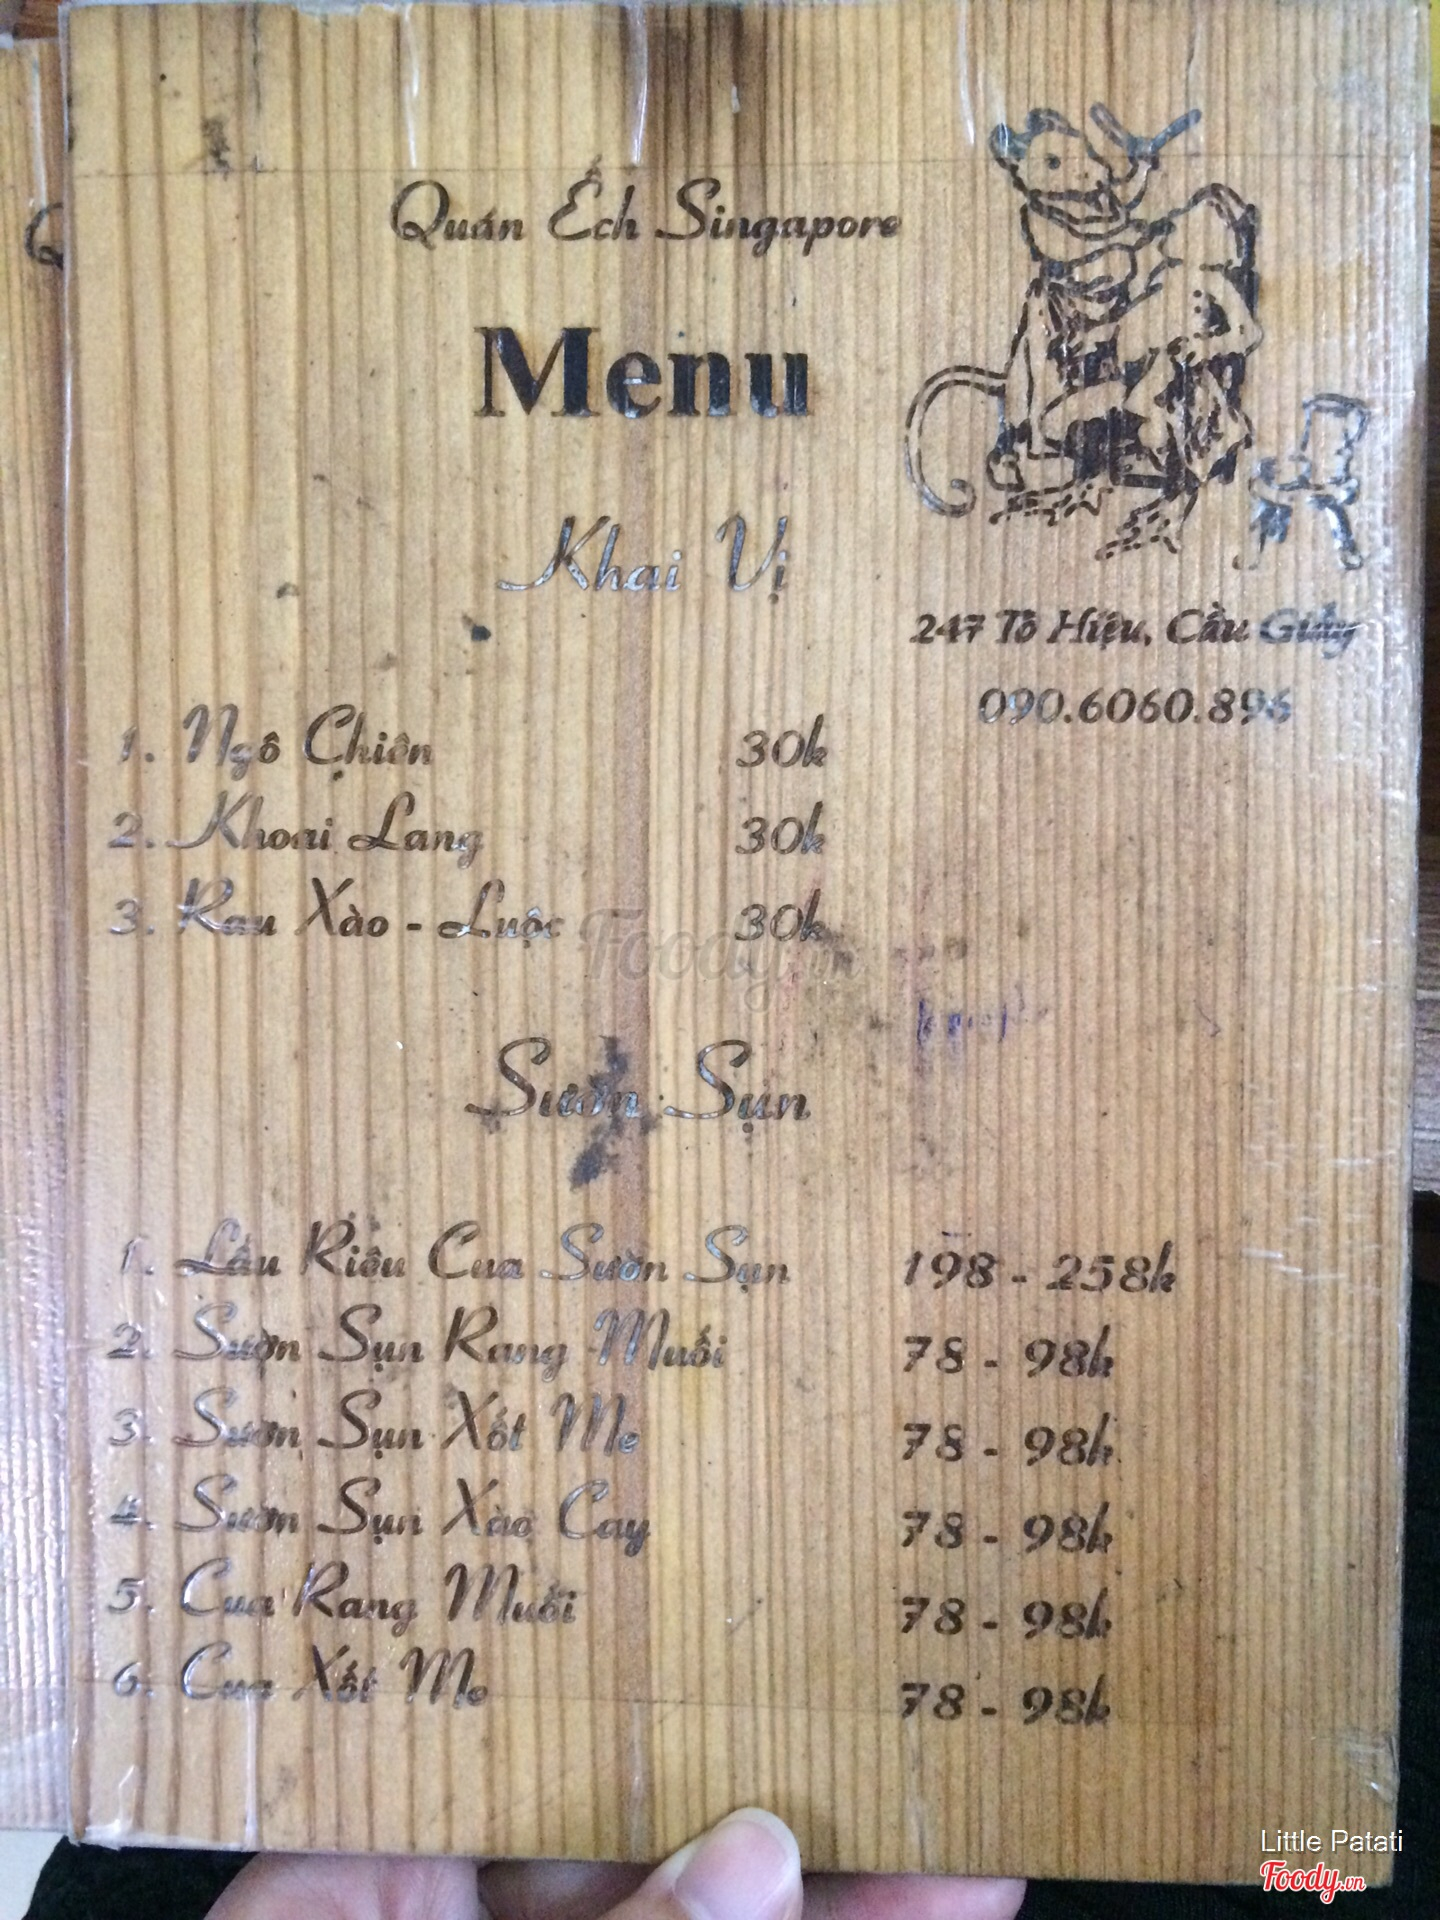 Quán Ếch Singapore
Menu
Khai Vị
247 Tô Hiệu, Cầu Giấy
090.6060.896
1. Ngô Chiên 30k
2. Khoai Lang 30k
3. Rau Xào - Luộc 30k
Foody.vn
Sườn Sụn
1. Lẩu Riêu Cua Sườn Sụn 198 - 258k
2. Sườn Sụn Rang Muối 78 - 98k
3. Sườn Sụn Xốt Me 78 - 98k
4. Sườn Sụn Xào Cay 78 - 98k
5. Cua Rang Muối 78 - 98k
6. Cua Xốt Me 78 - 98k
Little Patati
Foody.vn